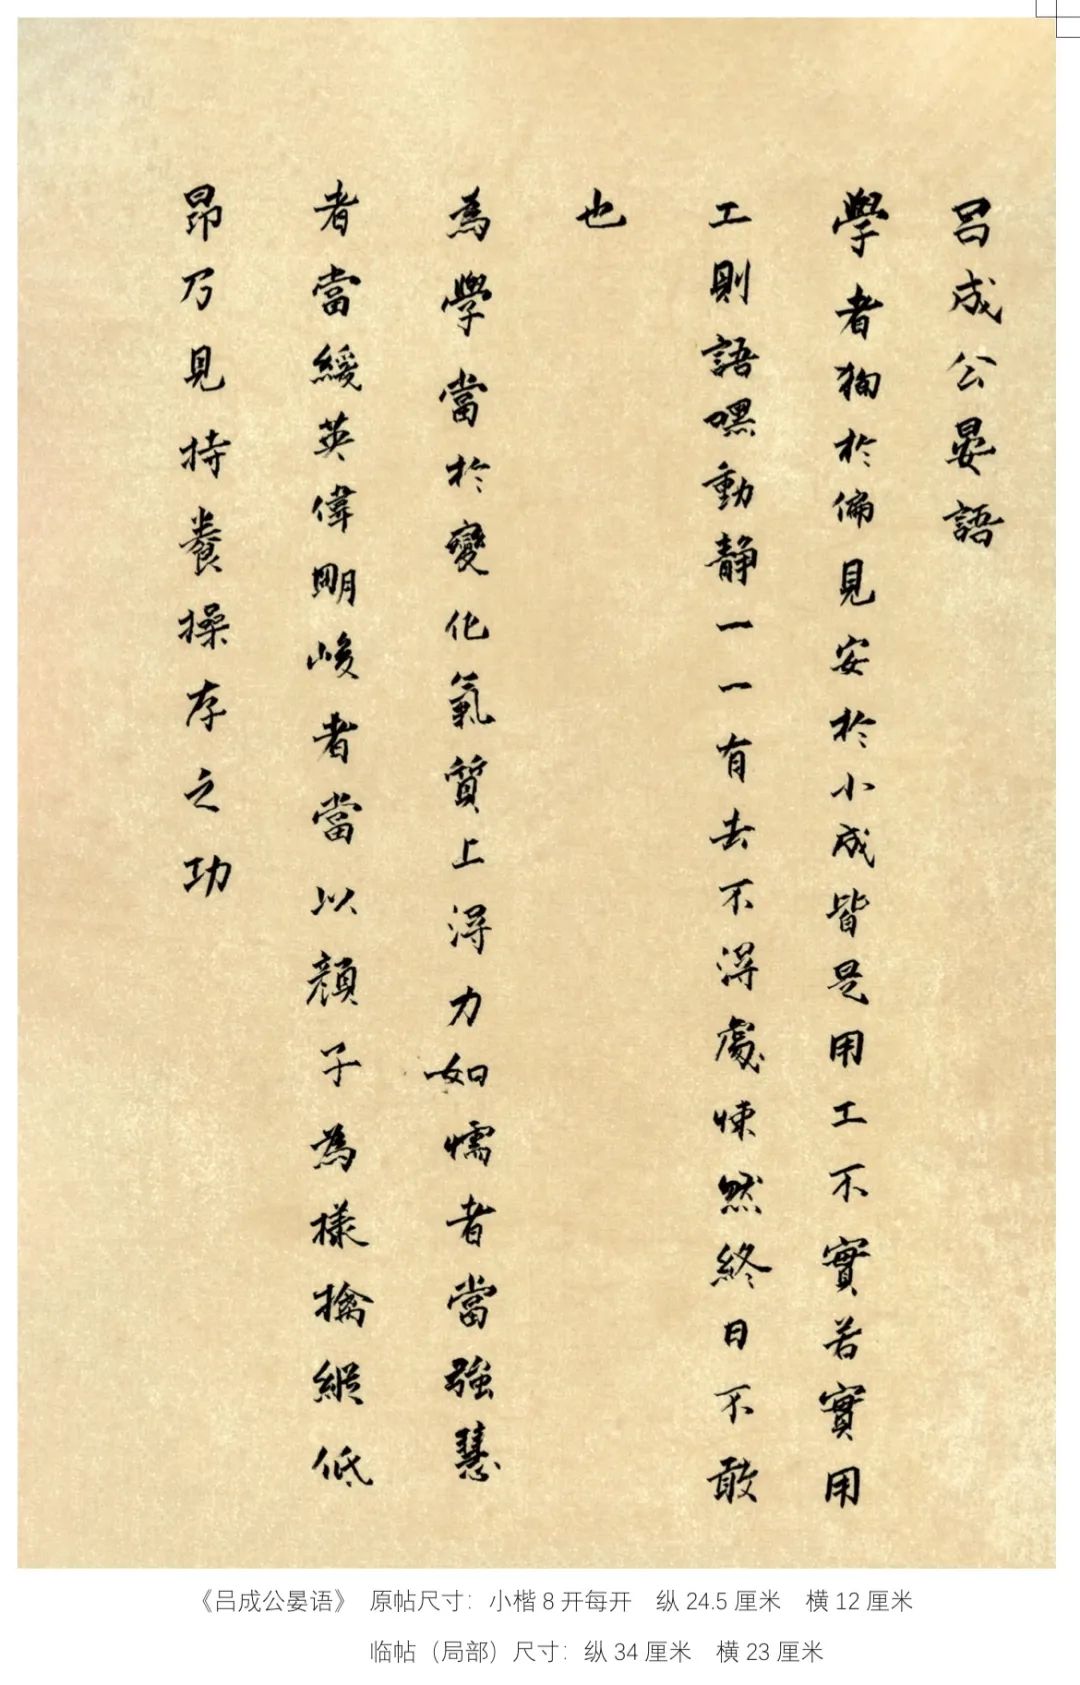 吕成公晏語
學者狥於偏見安於小成皆是用工不實若實用
工則語嘿動静一一有去不得處悚然終日不敢
也
為學當於變化氣質上得力如懦者當強慧
者當緩英偉明峻者當以顔子為樣擒縱低
昂乃見持養操存之功
《吕成公晏语》 原帖尺寸：小楷 8 开每开 纵 24.5 厘米 横 12 厘米
临帖（局部）尺寸：纵 34 厘米 横 23 厘米